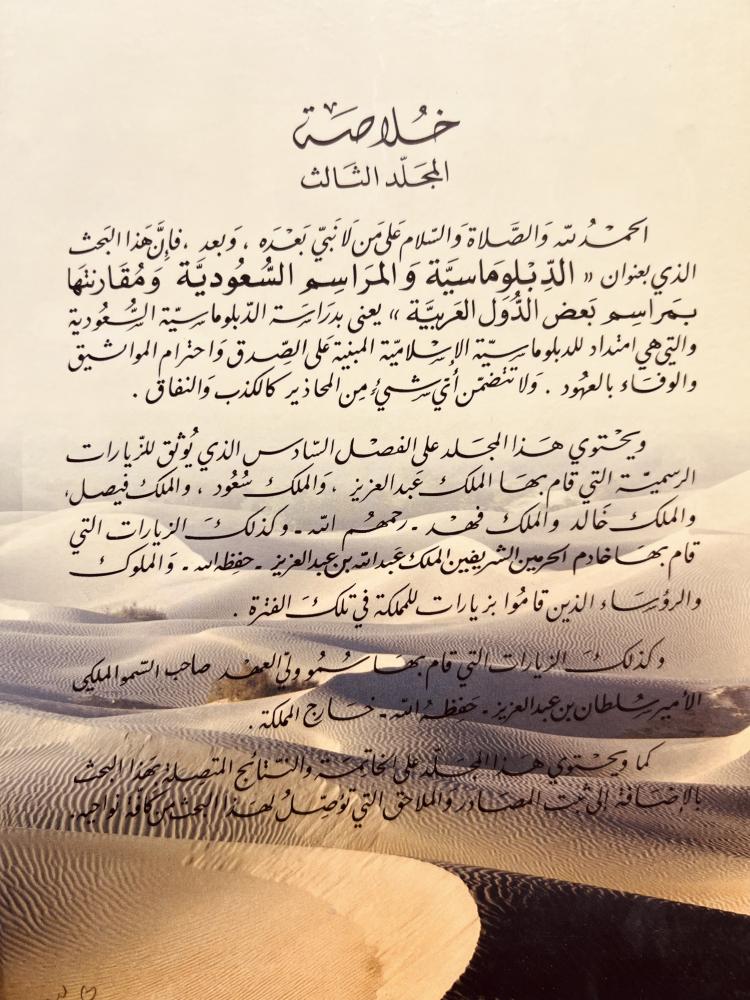 خُلاصَة
المجَلّد الثَالث
الحمْدُ لله وَالصَّلاة وَالسَّلام عَلى مَن لَا نَبيّ بَعْدَه ، وَبعد ، فإنَّ هَذا البَحث
الذي بعنوان « الدِّبلومَاسيَّة وَالمرَاسِم السُّعوديَّة وَمُقَارنتها
بمَراسِم بَعض الدُّوَل العَربيَّة » يعنى بدرَاسَة الدّبلوماسيّة السُّعودية
والتي هي امتداد للدبلوماسيّة الإسْلاميّة المبنية عَلى الصِّدق وَاحترام المواثيق
والوفَاء بالعهُود . وَلا تتضمّن أيّ شيْء مِن المحَاذير كالكذب وَالنفاق .
ويحْتوي هَذا المجَلد على الفَصْل السّادس الذي يُوثق للزّيارات
الرسميّة التي قام بهَا الملك عَبد العزيز ، وَالملك سُعُود ، والملك فيصل،
والملك خَالد والملك فهد ـ رحمهُم الله ـ وكذلكَ الزيارات التي
قام بهَا خادم الحرمين الشريفين الملك عَبد الله بن عَبد العزيز ـ حفظه الله ـ وَالملوك
والرؤسَاء الذين قامُوا بزيارات للمملكة في تلكَ الفترة .
وكذلكَ الزيارات التي قام بهَا سُمُو وليّ العهْد صاحب السّمو الملكي
الأمير سُلطان بن عبد العزيز ـ حَفظهُ الله ـ خَارج المملكة .
كما ويحْتوي هَذا المجَلّد على الخاتمَة وَالنتَائج المتصلة بهَذا البَحث
بالإضَافة إلى ثبت المصَادر وَالملاحق التي توصِّلُ لهَذا البحث من كافّة نواحيه.